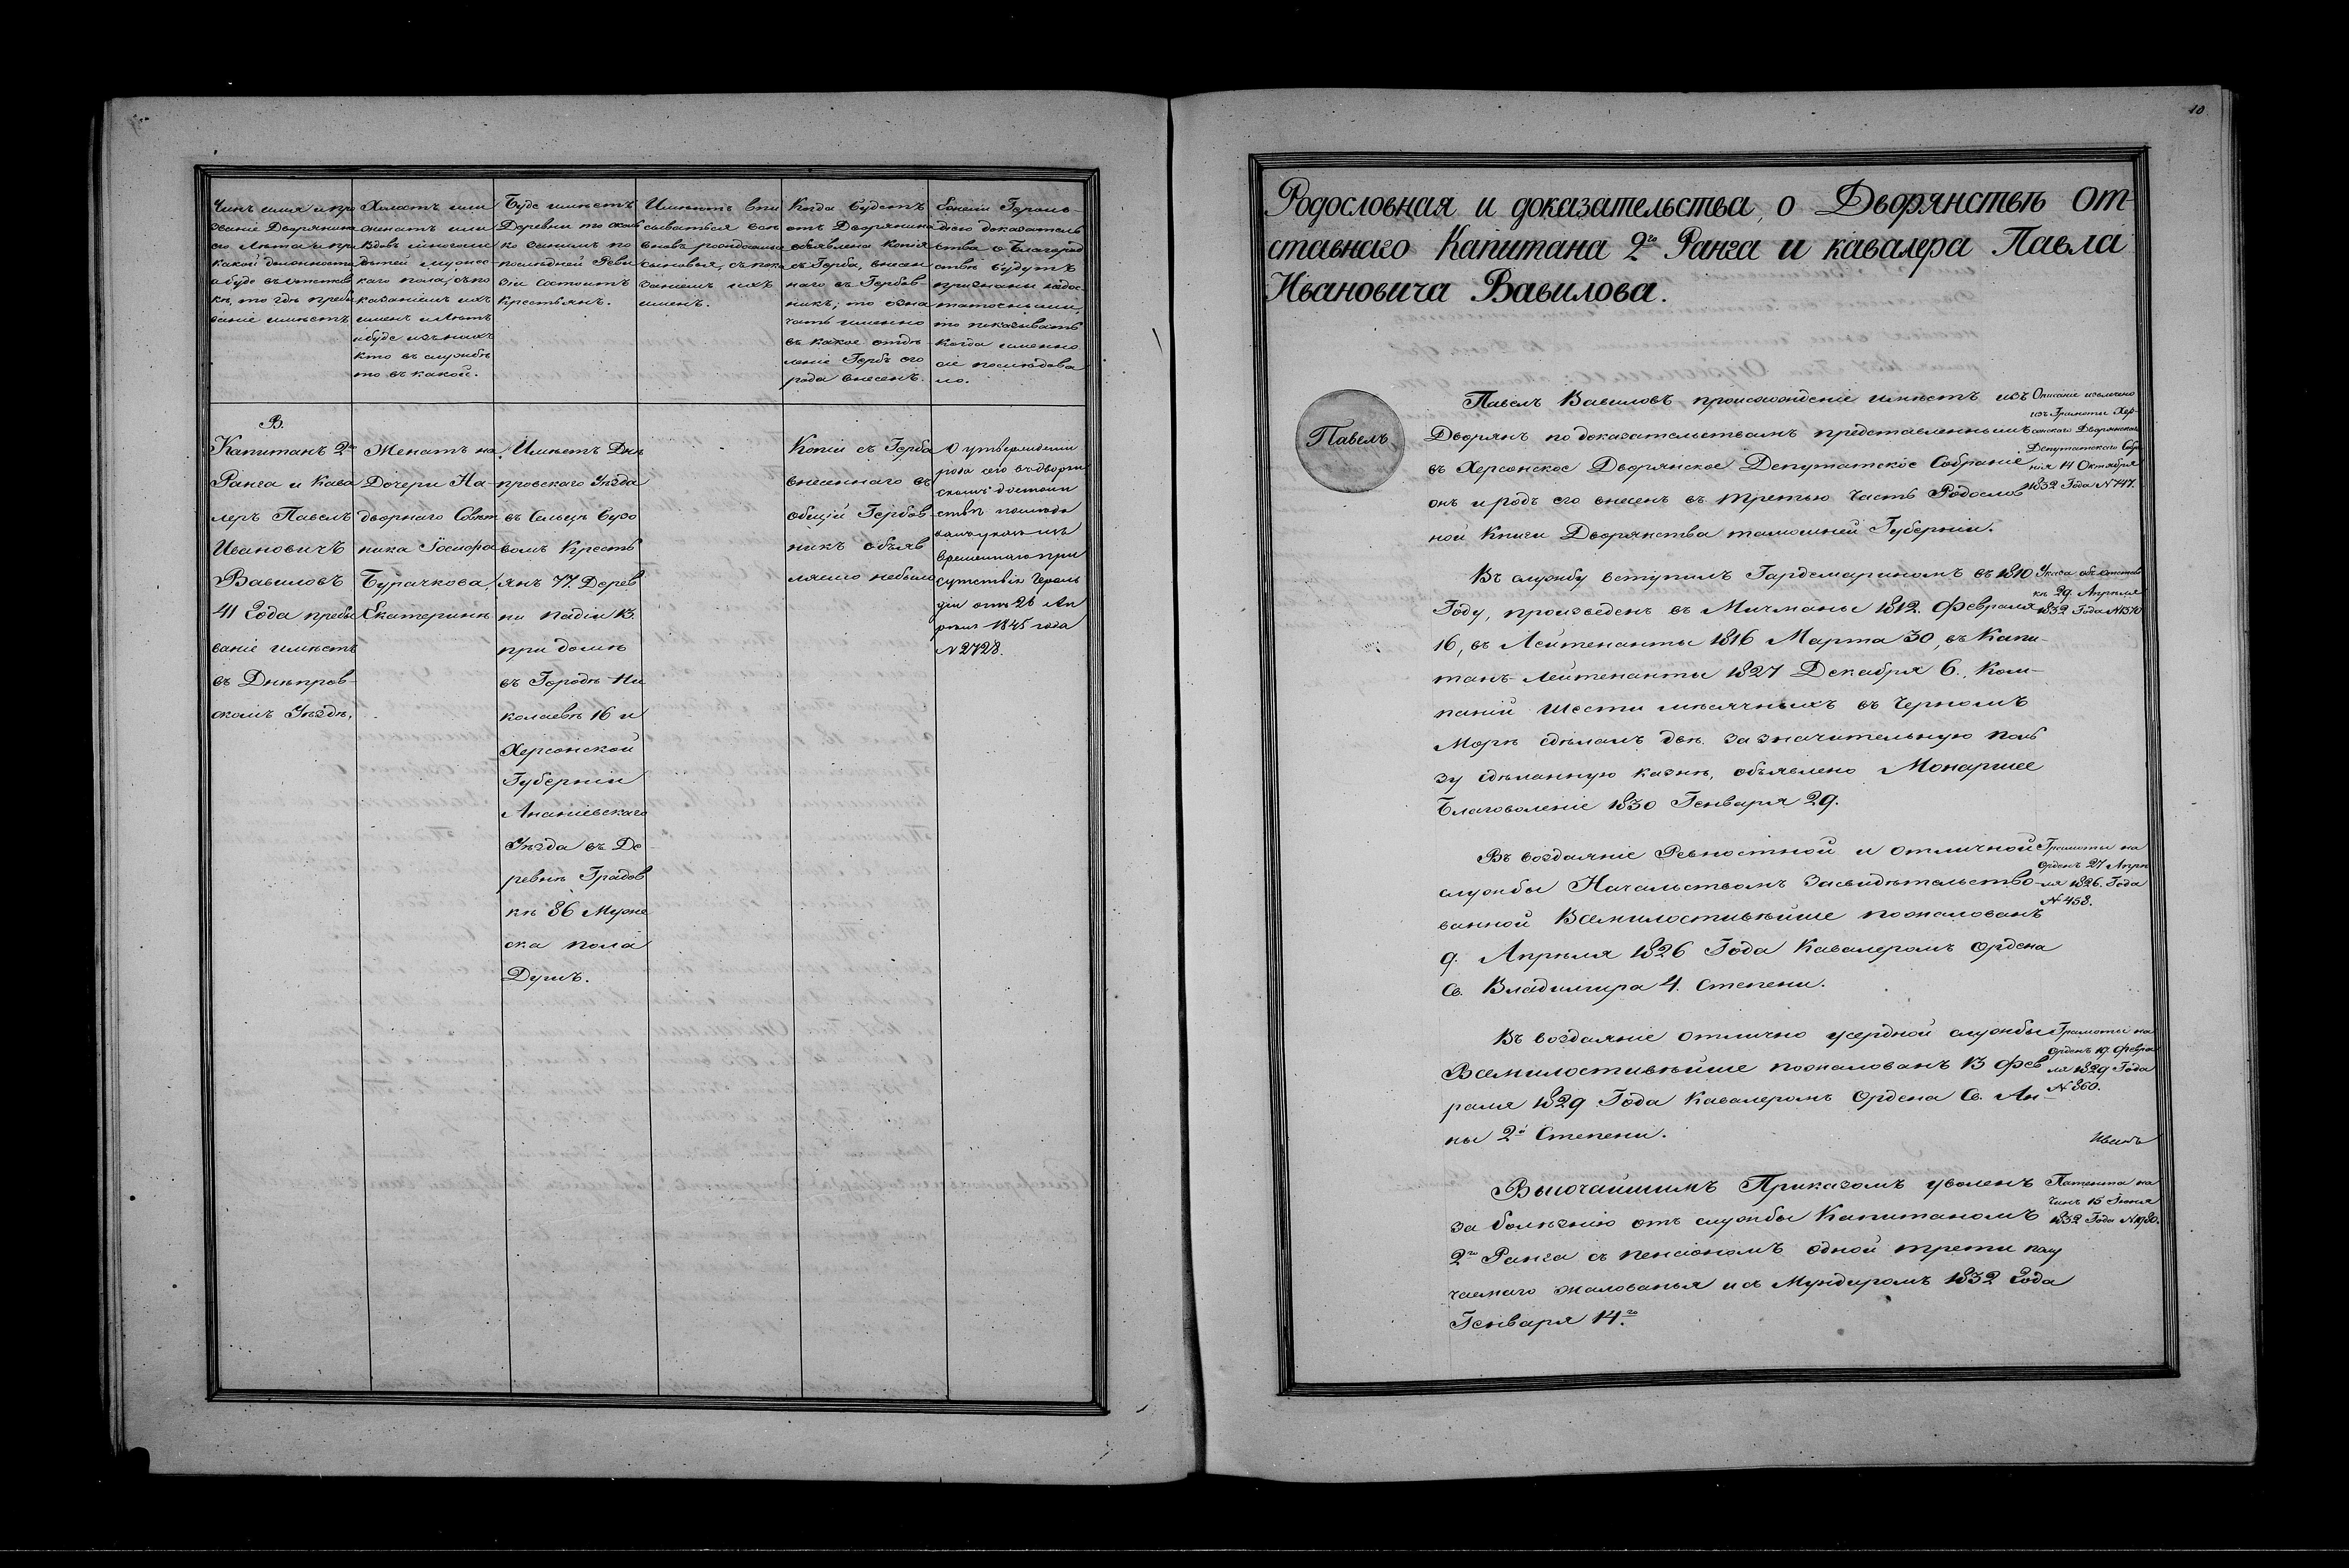 Чинъ имя и про
званіе Дворянина
его лѣта и при
какой должности
а буде въ отстав
кѣ, то гдѣ пребы
ваніе имѣетъ
Холостъ или
женатъ или
Вдовъ и не имѣе
дѣтей мужес
каго пола, съ по
казаніемъ ихъ
имен и лѣтъ
и буде изъ нихъ
кто въ службѣ
то въ какой.
Буде имѣетъ
Деревни то сколь
ко за нимъ по
послѣдней Реви
зіи состоитъ
Крестьянъ.
Имѣютъ впи
сываться вли
вновь рожденны
сыновья, съ пока
заніемъ ихъ
именъ.
Когда будетъ
отъ Дворянина
объявлена копія
съ Герба, внесен
наго въ Гербов
никъ, то озна
чать именно
въ какое отдѣ
леніе Гербъ его
рода внесенъ.
Ежели Героль-
діею доказатель
ства о Благород
ствѣ будутъ
признаны недос
таточными,
то показывать
когда именно
сіе послѣдова
ло.
В.
Капитанъ 2го
Ранга и Кава
леръ Павелъ
Ивановичъ
Вавиловъ
41 Года пребы
ваніе имѣетъ
въ Днѣпров-
скомъ Уѣздѣ,
Женатъ на
Дочери На-
дворнаго Совѣт
ника Іосифа
Бурачкова,
Екатеринѣ
Имѣетъ Днѣ
провскаго Уѣзда
въ Сельцѣ Сухо
вомъ Крестъ
янъ 77. Дерев
ни Падіи 13.
при домѣ
въ Городѣ Ни
колаевѣ 16 и
Херсонской
Губерніи
Ананіевскаго
Уѣзда въ Де
ревнѣ Градов
кѣ 86 Муже
ска пола
Душъ.
Копіи съ Герба
внесеннаго въ
общій Гербов
никъ объяв
ляемо небыло
О утвержденіи
рода сего въ дворян
скомъ достоин
ствѣ послѣдо
валъ указъ изъ
временнаго при
сутствія Героль
діи отъ 26 Ап
рѣля 1845 года
№ 2728.
10
Родословная и доказательства, о Дворянствѣ от-
ставнаго Капитана 2го Ранга и кавалера Павла
Ивановича Вавилова.
Павелъ
Павелъ Вавиловъ происхожденіе имѣетъ изъ
Дворянъ по доказательствамъ представленнымъ
въ Херсонское Дворянское Депутатское Собраніе,
онъ и родъ его внесенъ въ третью часть Родослов
ной Книги Дворянства тамошней Губерніи.
Описаніе извлечено
изъ Грамоты Хер-
сонскаго Дворянскаго
Депутатскаго Собра
нія 14 Октября
1832 Года № 747.
Въ службу вступилъ Гардемариномъ въ 1810
Году, произведенъ въ Мичманы 1812. Февраля
16, въ Лейтенанты 1816 Марта 30, въ Капи-
танъ-Лейтенанты 1827 Декабря 6., Ком-
паній шести мѣсячныхъ въ Черномъ
Морѣ сдѣлалъ двѣ. За значительную поль
зу сдѣланную казнѣ, объявлено Монаршее
Благоволеніе 1830 Генваря 29.
Указа объ отстав
кѣ 29. Апрѣля
1832 Года № 1570
Въ воздаяніе Ревностной и отличной
службы Начальствомъ Засвидѣтельство-
ванной Всемилостивѣйше пожалованъ
9. Апрѣля 1826 Года Кавалеромъ Ордена
Св. Владимира 4. Степени.
Грамоты на
Орденъ 27 Апрѣ
ля 1826. Года
№ 453.
Въ воздаяніе отлично усердной службы
Всемилостивѣйше пожалованъ 13 Фев
раля 1829 Года Кавалеромъ Ордена Св. Ан-
ны 2й Степени.
Грамоты на
Орденъ 19. Февра
ля 1829 Года
№ 360.
Высочайшимъ Приказомъ уволенъ
за болѣзнію отъ службы Капитаномъ
2го Ранга съ пенсіономъ одной трети полу
чаемаго жалованья и съ Мундиромъ 1832 Года
Генваря 14го
Патента на
Чинъ 15 Іюня
1832 Года № 1980.